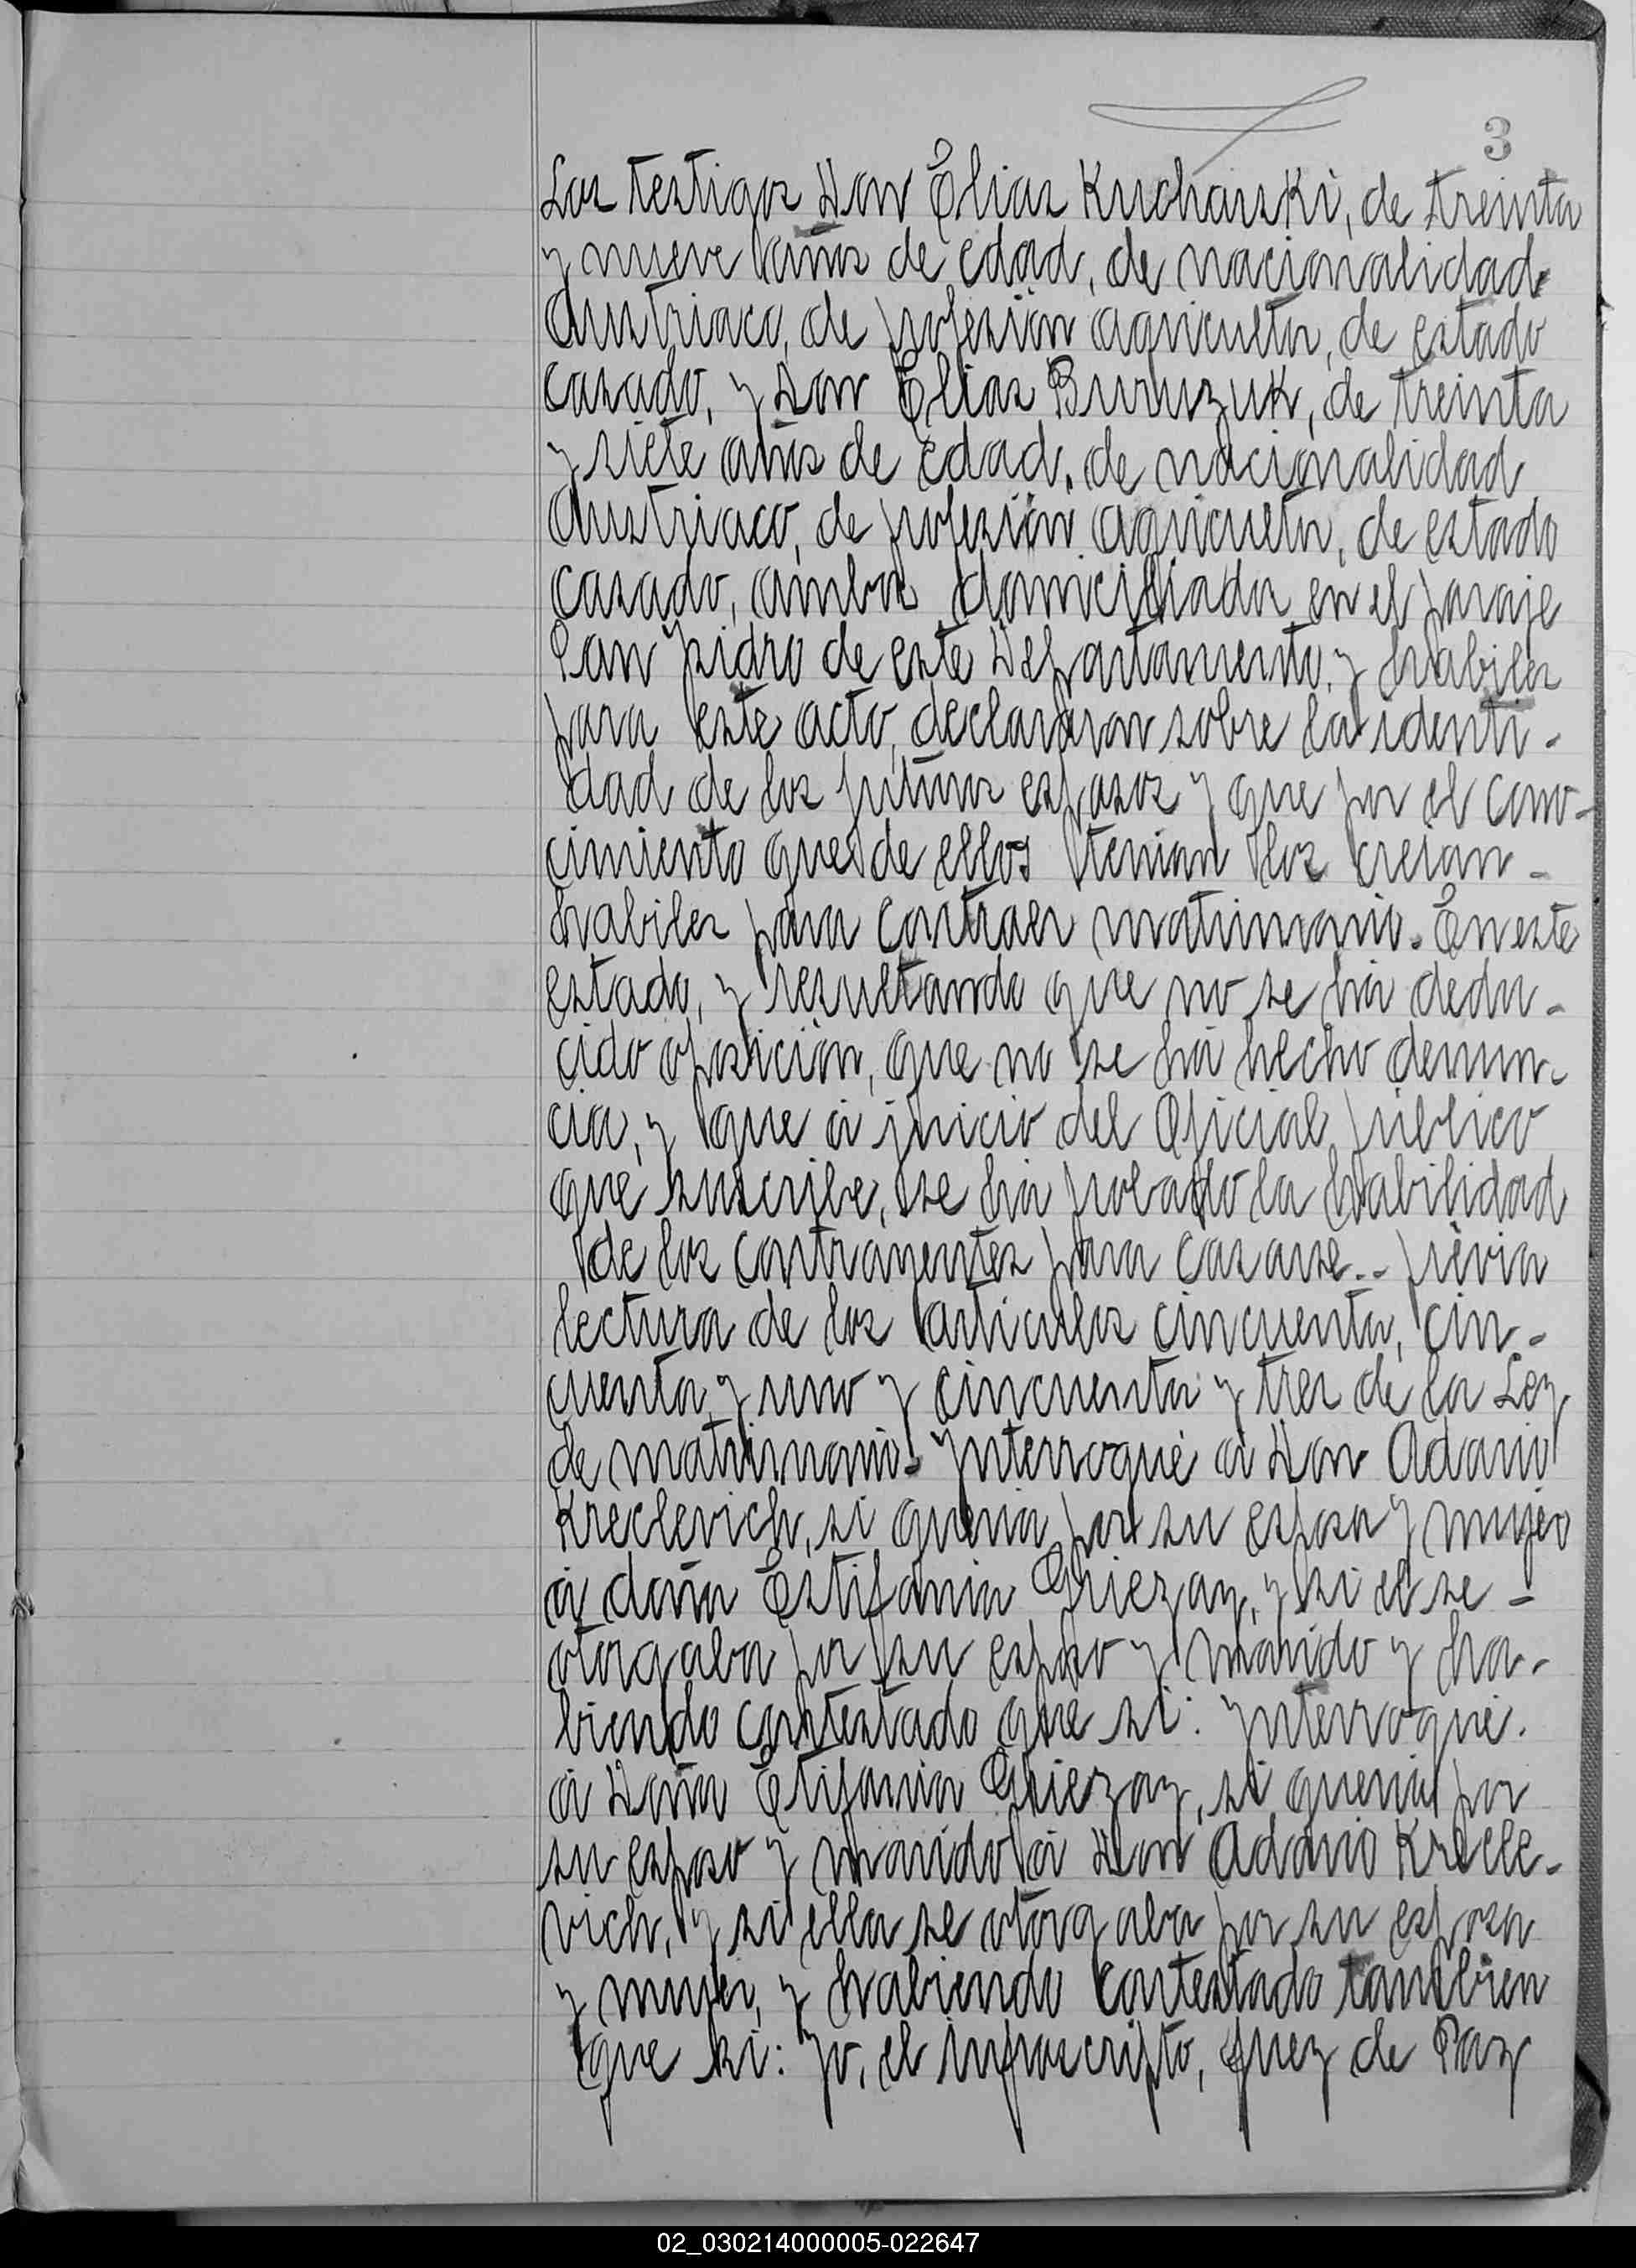 3
Los testigos Don Élias Kucharski, de treinta
y nueve años de edad, de nacionalidad
Austriaco, de profesión agricultor, de estado
casado, y Don Élias Buruszuk, de treinta
y siete años de edad, de nacionalidad
Austriaco, de profesión agricultor, de estado
casado, ambos domiciliados en el paraje
San Ysidro de este Departamento, y habiles
para este acto, declararon sobre la identi-
dad de los futuros esposos y que por el cono-
cimiento que de ellos tenian los creian -
habiles para contraer matrimonio. En este
estado, y resultando que no se há dedu-
cido oposición, que no se há hecho denun-
cia, y que á juicio del Oficial público
que suscribe, se há probado la habilidad
de los contrayentes para casarse.- prévia
lectura de los articulos cincuenta, cin-
cuenta y uno y cincuenta y tres de la Ley
de matrimonio. Ynterrogué á Don Adamo
Kreclevich, si queria por su esposa y mujer
á doña Estifania Griezay, y si él se -
otorgaba por su esposo y marido y ha-
biendo contestado que si: Ynterrogué.
á Doña Estifania Griezay, si queria por
su esposo y marido á Don Adamo Krecle-
vich, y si ella se otorgaba por su esposa
y mujer, y habiendo contestado tambien
que si: Yo, el infrascripto, Juez de Paz
02_030214000005-022647